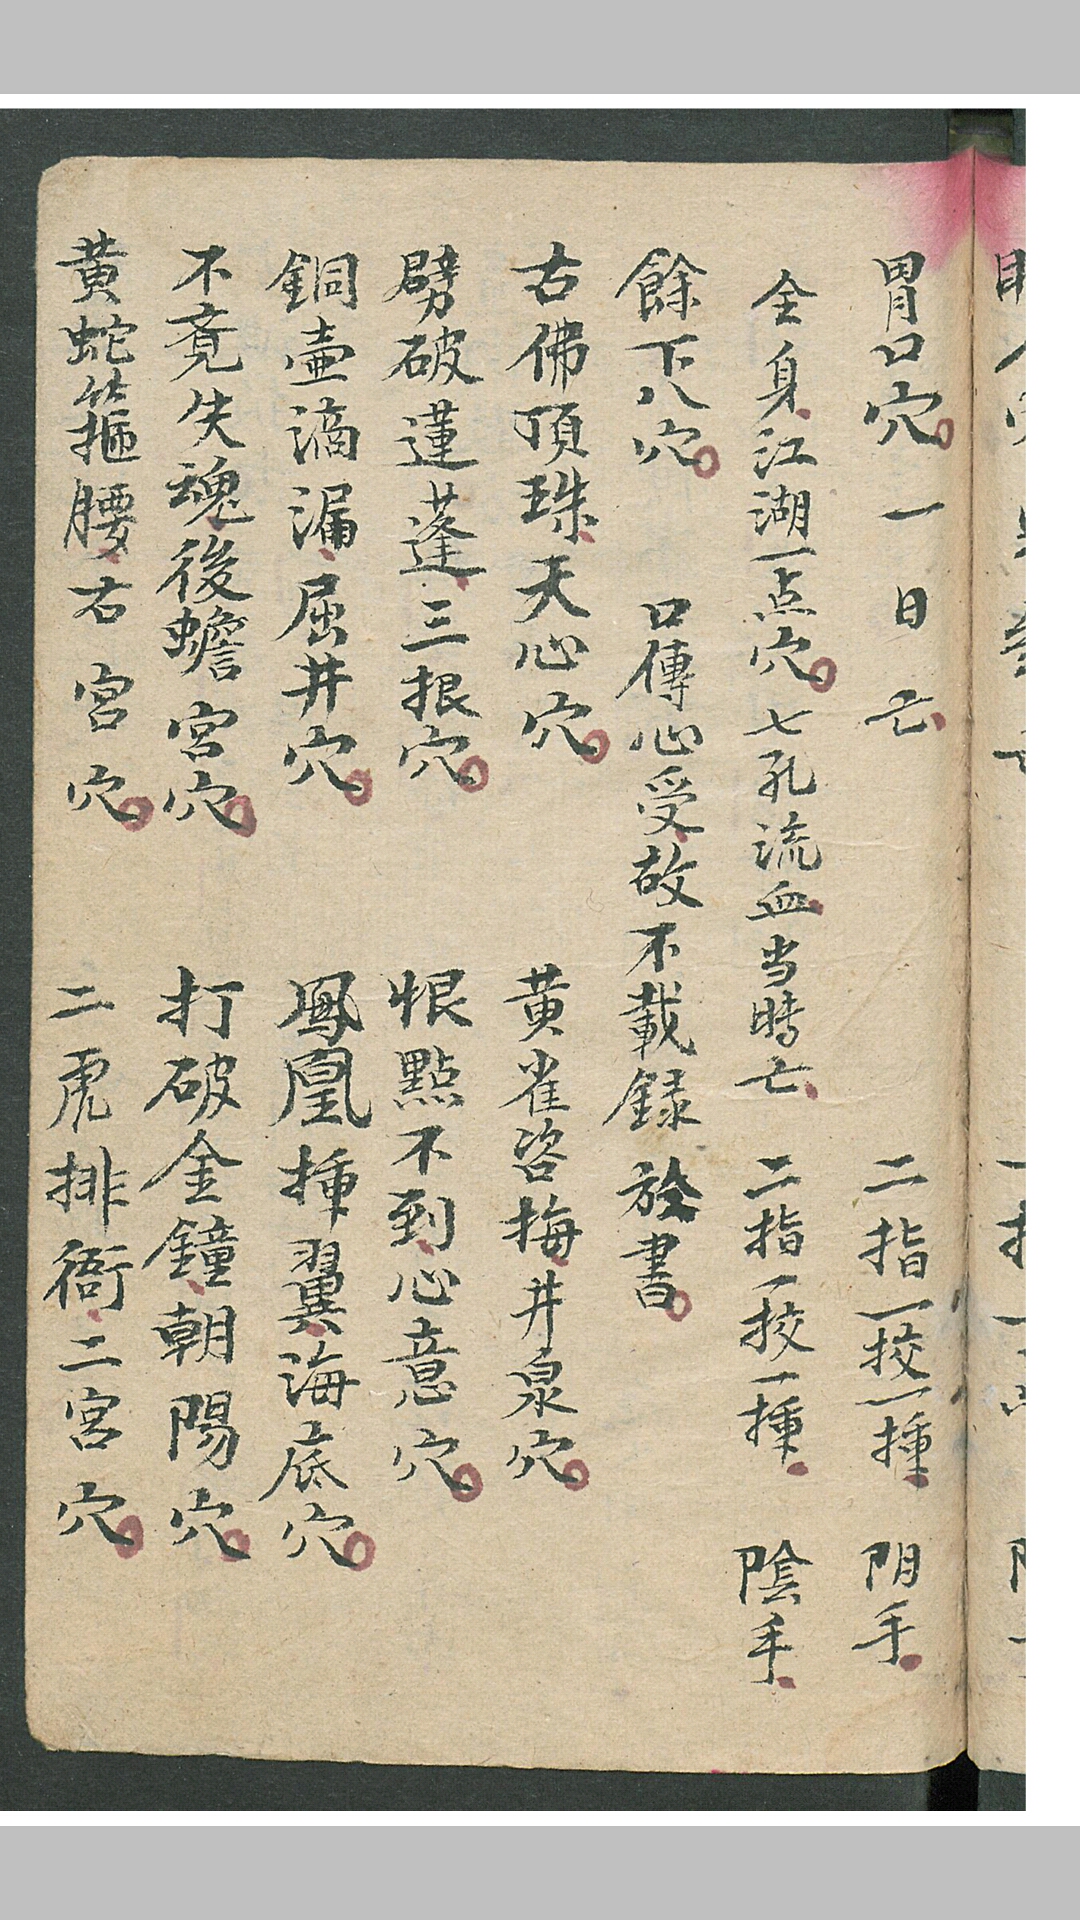 胃口穴 一日亡 二指一挍一揰 阴手
全身江湖一点穴 七孔流血当時亡 二指一挍一揰 陰手
餘下八穴 口傳心受故不載錄於書
古佛頂珠天心穴 黄雀咨梅井泉穴
劈破蓮蓬三根穴 恨點不到心意穴
銅壷滴漏屈井穴 鳳凰揰翼海底穴
不竟失魂後蟾宮穴 打破金鐘朝陽穴
黄蛇箍腰右宮穴 二虎排衙二宮穴